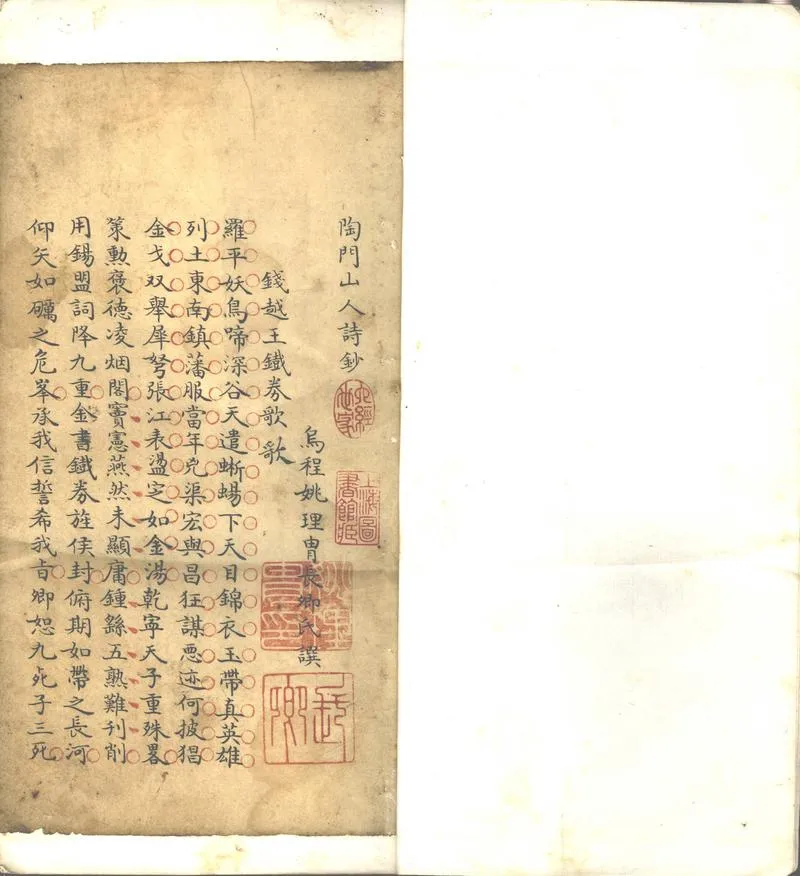 陶門山人詩鈔
烏程姚理胄長卿氏譔
錢越王鐵券歌歌
羅平妖鳥啼深谷天遣蜥蜴下天目錦衣玉帶真英雄
列土東南鎮藩服當年兇渠宏與昌狂謀悪迹何披猖
金戈双舉犀弩張江表盪定如金湯乾寧天子重殊畧
策勲褒德凌烟閣竇憲燕然未顯庸鍾繇五熟難刊削
用錫盟詞降九重金書鐵券旌侯封俯期如帶之長河
仰矢如礪之危峯承我信誓希我㫖卿恕九死子三死
上海圖書館藏